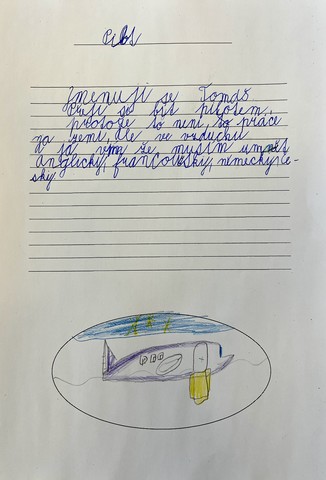 Pilot
Jmenuji se Tomáš
Přeji si být pilotem,
protože to není to práce
na zemi, ale ve vzduchu
a já vím že musím umět
anglicky, francouzsky, německy, če-
sky